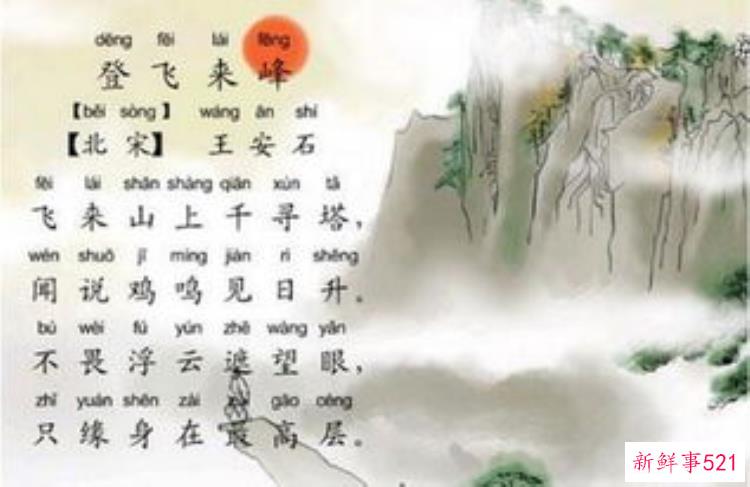 dēng fēi lái fēng
登飞来峰
【běi sòng】 wáng ān shí
【北宋】 王安石
fēi lái shān shàng qiān xún tǎ
飞来山上千寻塔,
wén shuō jī míng jiàn rì shēng
闻说鸡鸣见日升。
bú wèi fú yún zhē wàng yǎn
不畏浮云遮望眼,
zhǐ yuán shēn zài zuì gāo céng
只缘身在最高层。
新鲜事521